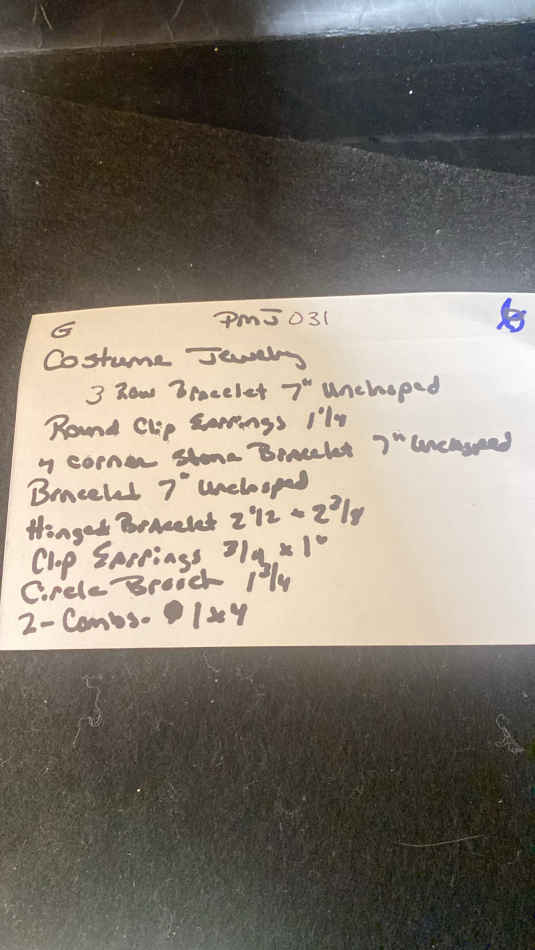 G PMJ 031
Costume Jewelry
3 Row Bracelet 7" Unclasped
Round Clip Earrings 1 1/4
4 corner Stone Bracelet 7" Unclasped
Bracelet 7" Unclasped
Hinged Bracelet 2 1/2 x 2 3/8
Clip Earrings 3/4 x 1"
Circle Brooch 1 3/4
2- Combs- 1x4